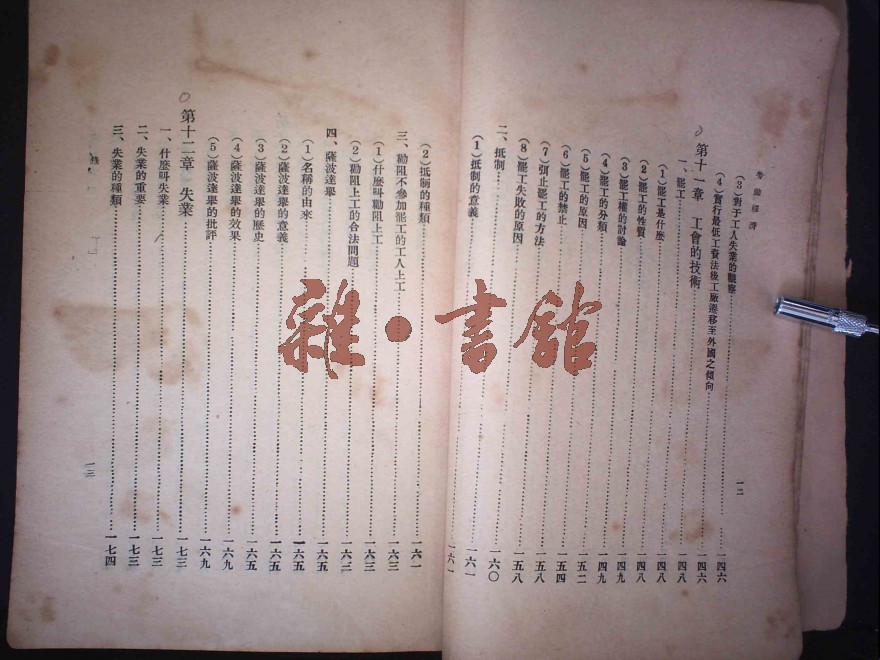 勞働經濟
一二
(3)對于工人失業的觀察……一四六
(4)實行最低工資法後工廠遷移至外國之傾向……一四六
第十一章 工會的技術……一四八
一、罷工……一四八
(1)罷工是什麼……一四八
(2)罷工的性質……一四九
(3)罷工權的討論……一四九
(4)罷工的分類……一五二
(5)罷工的原因……一五四
(6)罷工的禁止……一五八
(7)弭止罷工的方法……一五八
(8)罷工失敗的原因……一六〇
二、抵制……一六一
(1)抵制的意義……一六一
(2)抵制的種類……一六一
三、勸阻不參加罷工的工人上工……一六三
(1)什麼叫勸阻上工……一六三
(2)勸阻上工的合法問題……一六三
四、薩波達舉……一六五
(1)名稱的由來……一六五
(2)薩波達舉的意義……一六五
(3)薩波達舉的歷史……一六五
(4)薩波達舉的效果……一六九
(5)薩波達舉的批評……一六九
第十二章 失業……一七三
一、什麼叫失業……一七三
二、失業的重要……一七三
三、失業的種類……一七四
一三
雜·書館